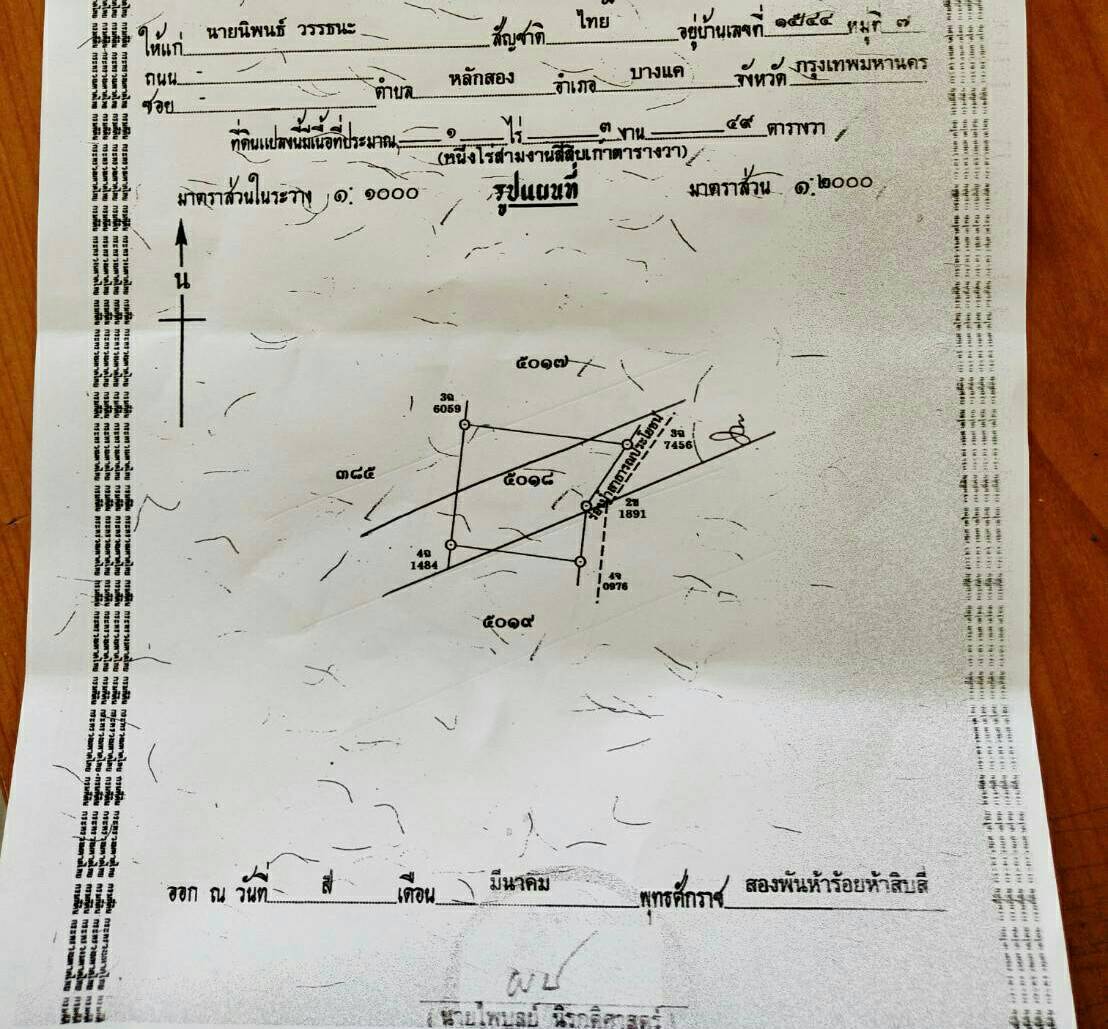 ให้แก่ นายนิพนธ์ วรรธนะ สัญชาติ ไทย อยู่บ้านเลขที่ ๑๕/๔๔ หมู่ที่ ๗
ถนน - ตำบล หลักสอง อำเภอ บางแค จังหวัด กรุงเทพมหานคร
ซอย -
ที่ดินแปลงนี้มีเนื้อที่ประมาณ ๑ ไร่ ๓ งาน ๔๙ ตารางวา
(หนึ่งไร่สามงานสี่สิบเก้าตารางวา)
มาตราส่วนในระวาง ๑: ๑๐๐๐ รูปแผนที่ มาตราส่วน ๑:๒๐๐๐
น
๕๐๑๗
3ฉ
6059
3ฉ
7456
ร่องน้ำสาธารณประโยชน์
๓๘๕
๕๐๑๘
2ช
1891
4ฉ
1484
4จ
0976
๕๐๑๙
ออก ณ วันที่ สี่ เดือน มีนาคม พุทธศักราช สองพันห้าร้อยห้าสิบสี่
(นายไพบูลย์ นิรุกติศาสตร์)